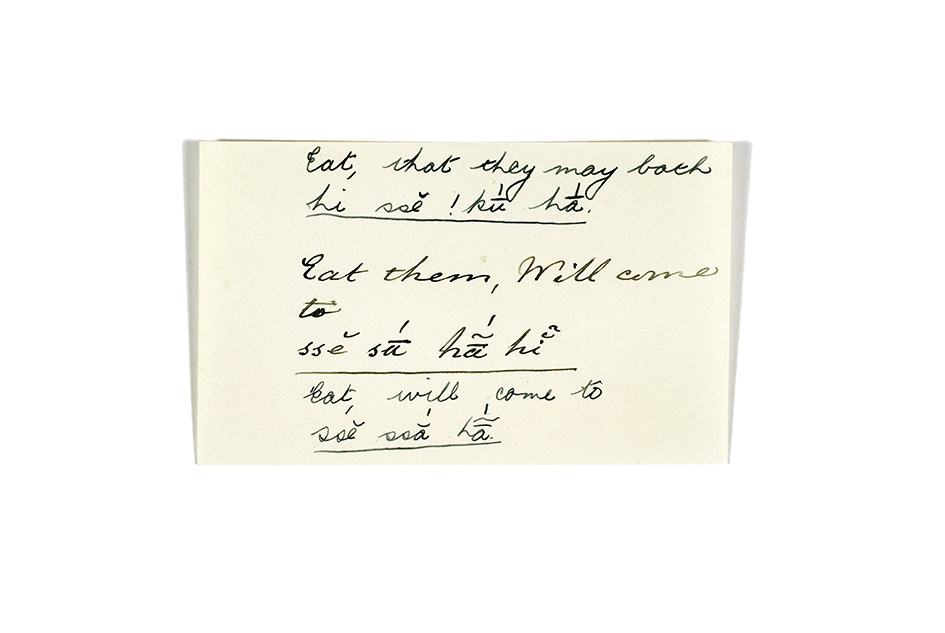 Eat, that they may both
hi ssĕ ! kṹ̱ hā̱́.
Eat them, Will come
to
ssĕ sṹ̱ hā̃́ hĩ̆
Eat, will come to
ssĕ ssā́ hā̃́.